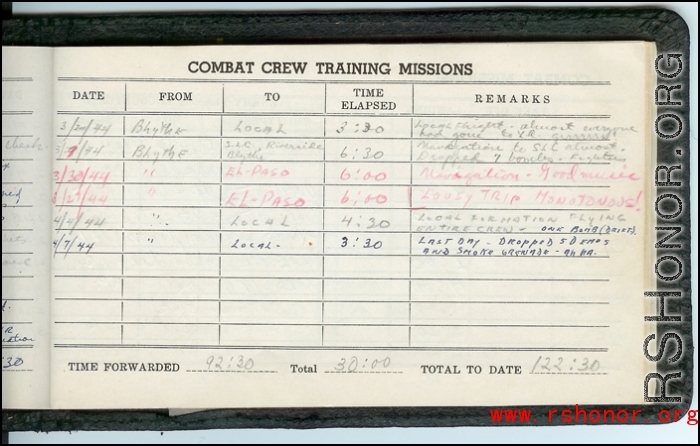 COMBAT CREW TRAINING MISSIONS
DATE FROM TO TIME ELAPSED REMARKS
3/20/44 Blythe LOCAL 3:30 Local Flight - almost everyone
had gone to
/44 BLYTHE S.L.C. Riverside Blythe 6:30 Navigation to SLC almost.
Dropped 7 bombs - Fighters
3/28/44 " EL-PASO 6:00 Navigation - Good music
3/29/44 " EL-PASO 6:00 LOUSY TRIP MONOTONOUS!
4/4/44 " LOCAL 4:30 LOCAL FORMATION FLYING
ENTIRE CREW - ONE BOMB (DRIFT).
4/7/44 " LOCAL- 3:30 LAST DAY - DROPPED 5 DEMOS
AND SMOKE GRENADE - AHHA.
TIME FORWARDED 92:30 Total 30:00 TOTAL TO DATE 122:30
:30
RSHONOR.ORG
www.rshonor.org